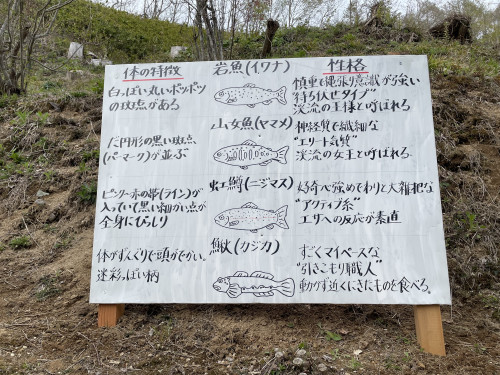 体の特徴
岩魚(イワナ)
性格
白っぽい丸いポツポツ
の斑点がある
慎重で縄張り意識が強い
"待ち伏せタイプ"
渓流の王様と呼ばれる
山女魚(ヤマメ)
だ円形の黒い斑点
(パーマーク)が並ぶ
神経質で繊細な
"エリート気質"
渓流の女王と呼ばれる。
虹鱒(ニジマス)
ピンク〜赤の帯(ライン)が
入っていて黒い細かい点が
全身にびっしり
好奇心強めでわりと大雑把な
"アクティブ系"
エサへの反応が素直
鰍(カジカ)
体がずんぐりで頭がでかい。
迷彩っぽい柄
すごくマイペースな
"引きこもり職人"
動かず近くにきたものを食べる。